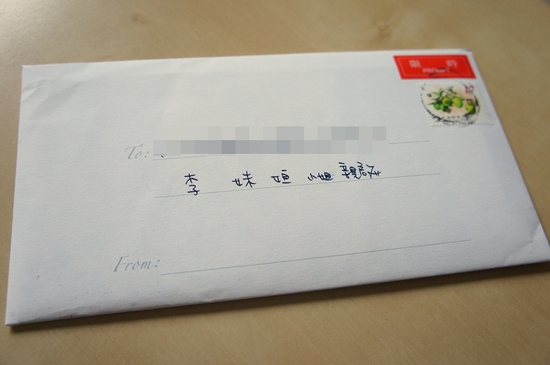 限時
PROMPT
To:
李妹妲小姐親啟
From: